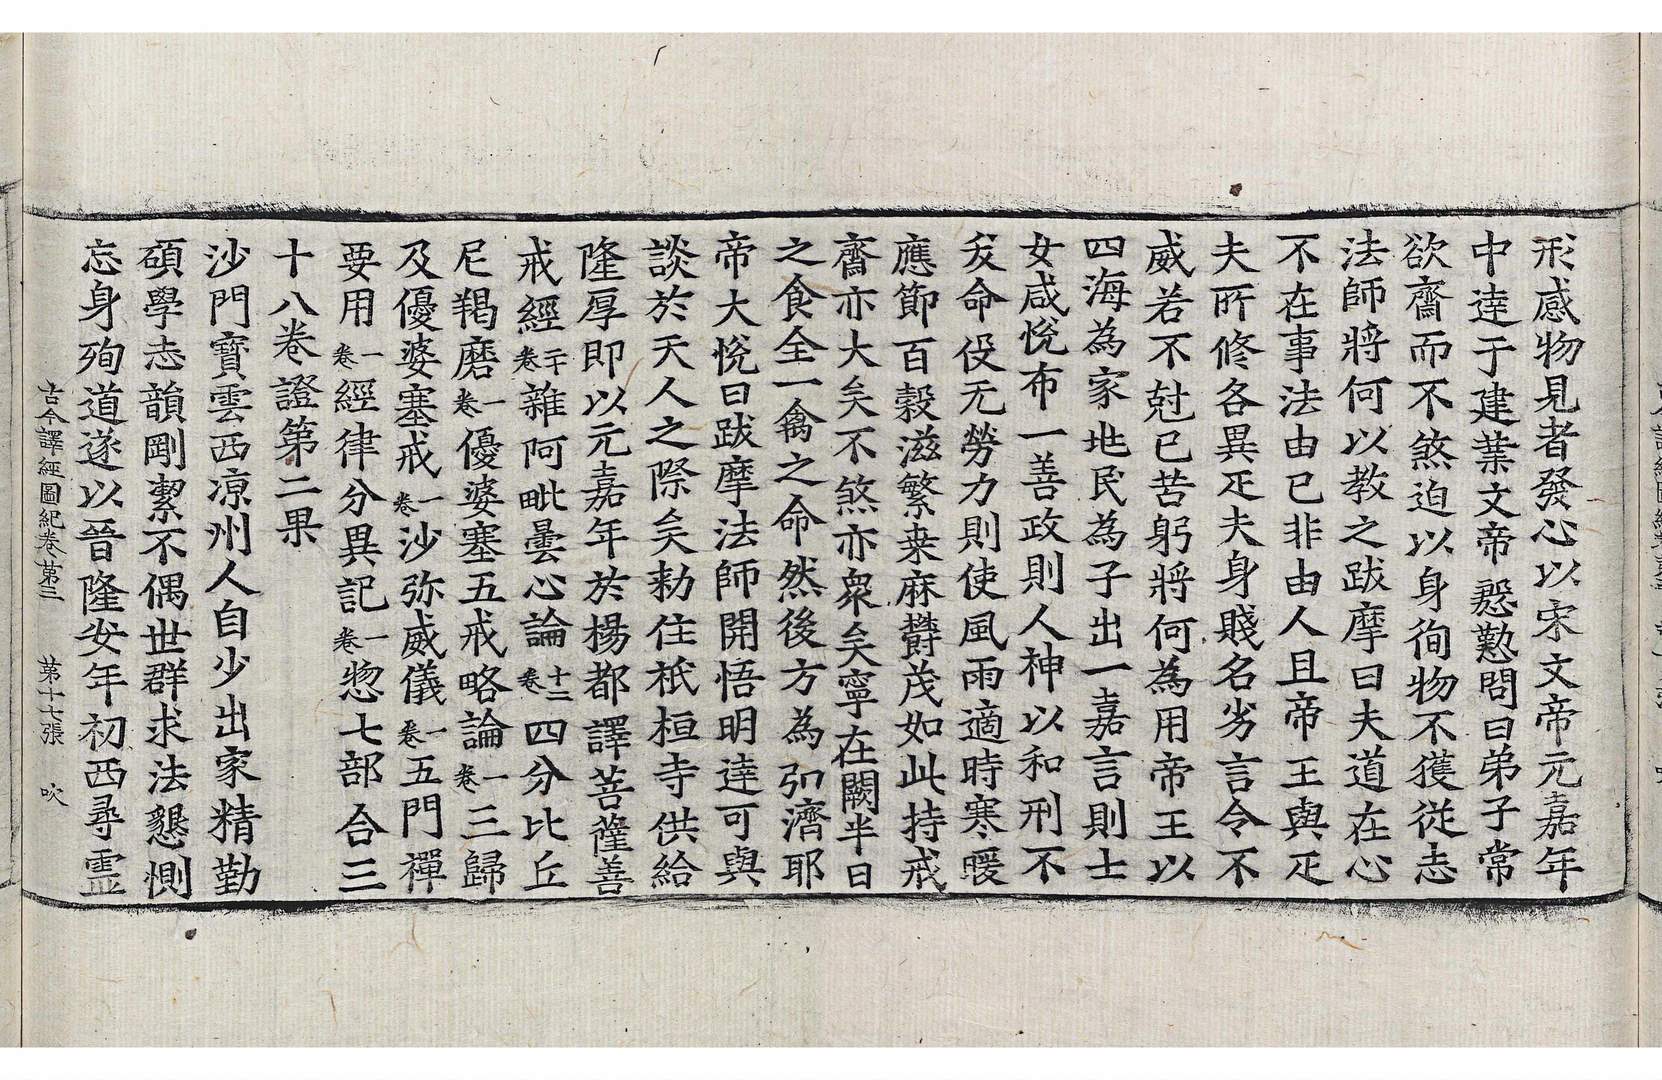 形感物見者發心以宋文帝元嘉年
中達于建業文帝慇懃問曰弟子常
欲齋而不煞迫以身徇物不獲從志
法師將何以教之跋摩曰夫道在心
不在事法由已非由人且帝王與疋
夫所修各異疋夫身賤名劣言令不
威若不尅已苦躬將何為用帝王以
四海為家地民為子出一嘉言則士
女咸悅布一善政則人神以和刑不
夭命役无勞力則使風雨適時寒暖
應節百穀滋繁桒麻欝茂如此持戒
齋亦大矣不煞亦衆矣寧在闕半日
之食全一禽之命然後方為弘濟耶
帝大悅曰跋摩法師開悟明達可與
談於天人之際矣勑住祇桓寺供給
隆厚即以元嘉年於揚都譯菩薩善
戒經二十卷雜阿毗曇心論十三卷四分比丘
尼羯磨一卷優婆塞五戒略論一卷三歸
及優婆塞戒一卷沙弥威儀一卷五門禪
要用一卷經律分異記一卷惣七部合三
十八卷證第二果
沙門寶雲西涼州人自少出家精勤
碩學志韻剛絜不偶世群求法懇惻
忘身殉道遂以晉隆安年初西尋靈
古今譯經圖紀卷第三 第十七張 吹